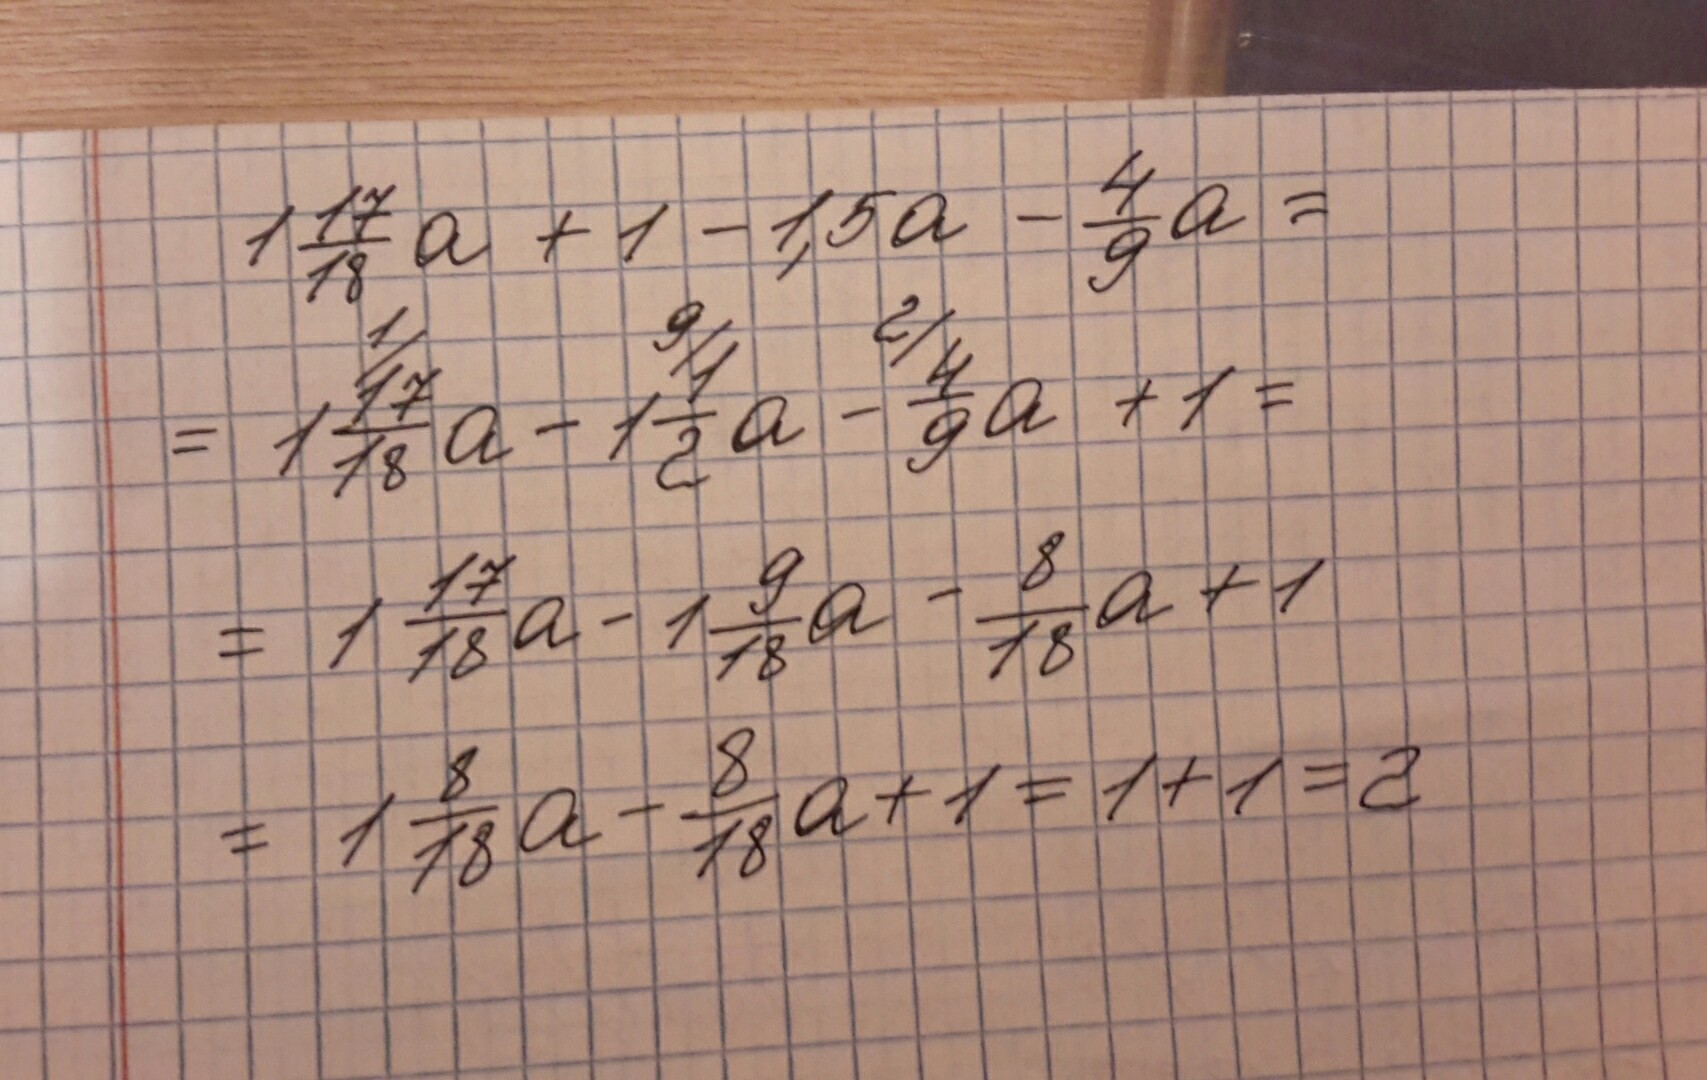 1 17/18 a + 1 - 1,5a - 4/9 a =
1/ 9/ 2/
= 1 17/18 a - 1 1/2 a - 4/9 a + 1 =
= 1 17/18 a - 1 9/18 a - 8/18 a + 1
= 1 8/18 a - 8/18 a + 1 = 1 + 1 = 2